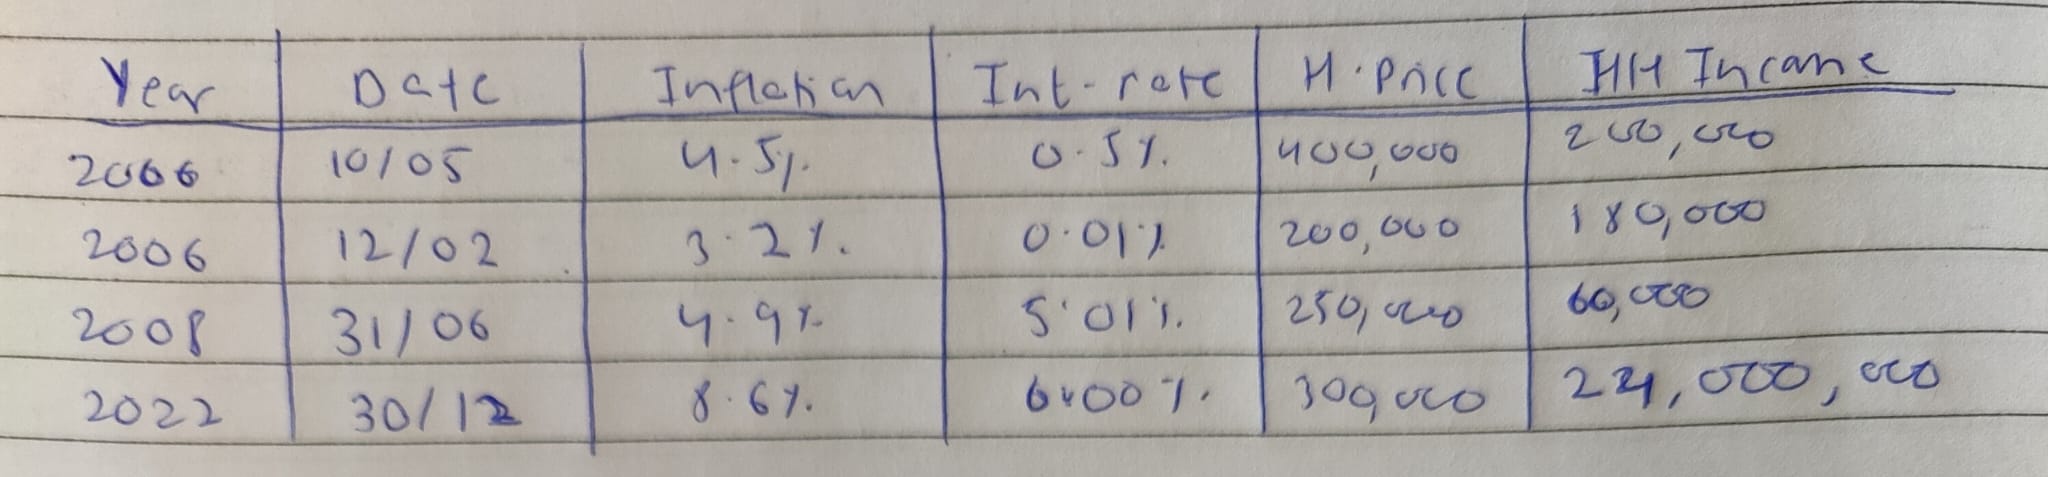 Year Date Inflation Int-rate H.Price HH Income
2006 10/05 4.5% 0.5% 400,000 200,000
2006 12/02 3.2% 0.01% 200,000 180,000
2008 31/06 4.9% 5.01% 250,000 60,000
2022 30/12 8.6% 6.00% 300,000 221,000,000